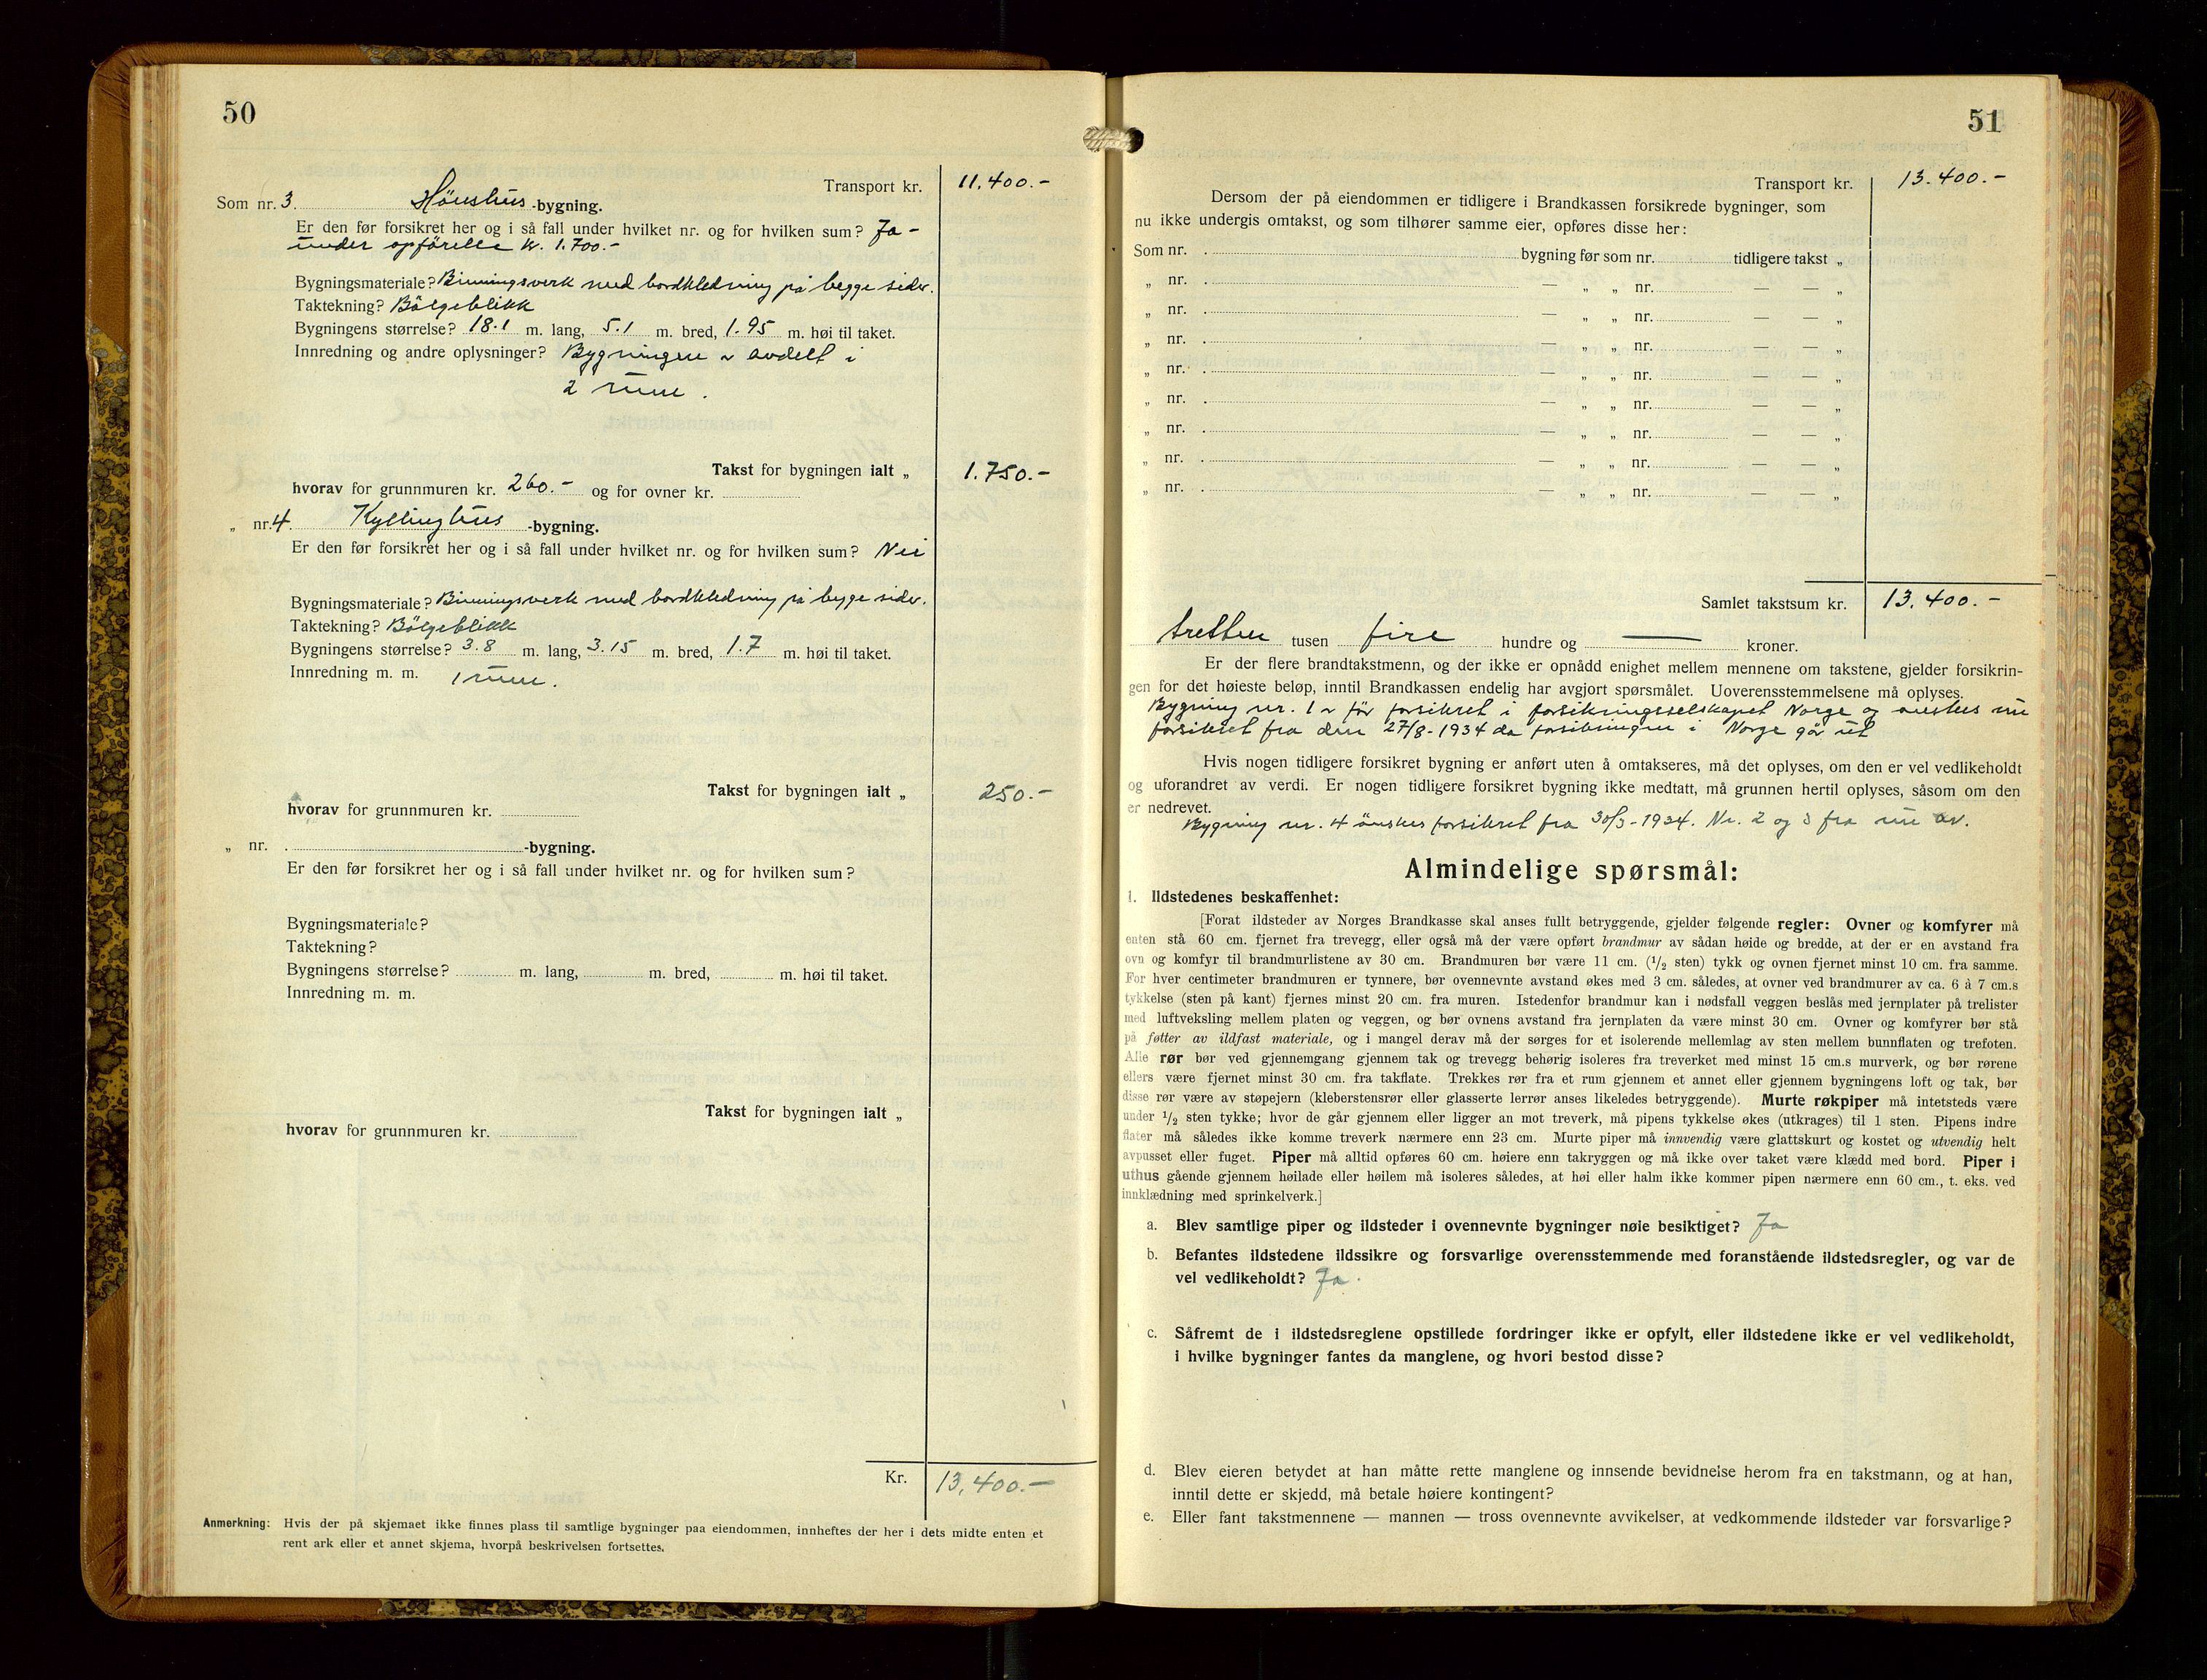 50
Transport kr. 11.400.-
Som nr. 3. Hönshus -bygning.
Er den før forsikret her og i så fall under hvilket nr. og for hvilken sum? Ja -
under opförelse kr. 1.700.-
Bygningsmateriale? Binningsverk med bordkledning på begge sider.
Taktekning? Bölgeblikk
Bygningens størrelse? 18.1 m. lang, 5.1 m. bred, 1.95 m. høi til taket.
Innredning og andre oplysninger? Bygningen er avdelt i
2 rum.
Takst for bygningen ialt „ 1.750.-
hvorav for grunnmuren kr. 260.- og for ovner kr.
„ nr. 4. Kyllinghus -bygning.
Er den før forsikret her og i så fall under hvilket nr. og for hvilken sum? Nei
Bygningsmateriale? Binningsverk med bordkledning på begge sider.
Taktekning? Bölgeblikk
Bygningens størrelse? 3.8 m. lang, 3.15 m. bred, 1.7 m. høi til taket.
Innredning m. m. 1 rum.
Takst for bygningen ialt „ 250.-
hvorav for grunnmuren kr.
„ nr. . -bygning.
Er den før forsikret her og i så fall under hvilket nr. og for hvilken sum?
Bygningsmateriale?
Taktekning?
Bygningens størrelse? m. lang, m. bred, m. høi til taket.
Innredning m. m.
Takst for bygningen ialt „
hvorav for grunnmuren kr.
Kr. 13,400.-
Anmerkning: Hvis der på skjemaet ikke finnes plass til samtlige bygninger paa eiendommen, innheftes der her i dets midte enten et
rent ark eller et annet skjema, hvorpå beskrivelsen fortsettes.
51
Transport kr. 13.400.-
Dersom der på eiendommen er tidligere i Brandkassen forsikrede bygninger, som
nu ikke undergis omtakst, og som tilhører samme eier, opføres disse her:
Som nr. . bygning før som nr. tidligere takst „
„ nr. . — „ „ nr. — — „
„ nr. . — „ „ nr. — — „
„ nr. . — „ „ nr. — — „
„ nr. . — „ „ nr. — — „
„ nr. . — „ „ nr. — — „
„ nr. . — „ „ nr. — — „
„ nr. . — „ „ nr. — — „
„ nr. . — „ „ nr. — — „
Samlet takstsum kr. 13.400.-
tretten tusen fire hundre og — kroner.
Er der flere brandtakstmenn, og der ikke er opnådd enighet mellem mennene om takstene, gjelder forsikrin-
gen for det høieste beløp, inntil Brandkassen endelig har avgjort spørsmålet. Uoverensstemmelsene må oplyses.
Bygning nr. 1 er för forsikret i forsikringsselskapet Norge og önskes nu
forsikret fra den 27/8-1934 da forsikringen i Norge går ut
Hvis nogen tidligere forsikret bygning er anført uten å omtakseres, må det oplyses, om den er vel vedlikeholdt
og uforandret av verdi. Er nogen tidligere forsikret bygning ikke medtatt, må grunnen hertil oplyses, såsom om den
er nedrevet.
Bygning nr. 4 önskes forsikret fra 30/3-1934. Nr. 2 og 3 fra nu av.
Almindelige spørsmål:
1. Ildstedenes beskaffenhet:
[Forat ildsteder av Norges Brandkasse skal anses fullt betryggende, gjelder følgende regler: Ovner og komfyrer må
enten stå 60 cm. fjernet fra trevegg, eller også må der være opført brandmur av sådan høide og bredde, at der er en avstand fra
ovn og komfyr til brandmurlistene av 30 cm. Brandmuren bør være 11 cm. (1/2 sten) tykk og ovnen fjernet minst 10 cm. fra samme.
For hver centimeter brandmuren er tynnere, bør ovennevnte avstand økes med 3 cm. således, at ovner ved brandmurer av ca. 6 à 7 cm.s
tykkelse (sten på kant) fjernes minst 20 cm. fra muren. Istedenfor brandmur kan i nødsfall veggen beslås med jernplater på trelister
med luftveksling mellem platen og veggen, og bør ovnens avstand fra jernplaten da være minst 30 cm. Ovner og komfyrer bør stå
på føtter av ildfast materiale, og i mangel derav må der sørges for et isolerende mellemlag av sten mellem bunnflaten og trefoten.
Alle rør bør ved gjennemgang gjennem tak og trevegg behørig isoleres fra treverket med minst 15 cm.s murverk, og bør rørene
ellers være fjernet minst 30 cm. fra takflate. Trekkes rør fra et rum gjennem et annet eller gjennem bygningens loft og tak, bør
disse rør være av støpejern (kleberstensrør eller glasserte lerrør anses likeledes betryggende). Murte røkpiper må intetsteds være
under 1/2 sten tykke; hvor de går gjennem eller ligger an mot treverk, må pipens tykkelse økes (utkrages) til 1 sten. Pipens indre
flater må således ikke komme treverk nærmere enn 23 cm. Murte piper må innvendig være glattskurt og kostet og utvendig helt
avpusset eller fuget. Piper må alltid opføres 60 cm. høiere enn takryggen og må ikke over taket være klædd med bord. Piper i
uthus gående gjennem høilade eller høilem må isoleres således, at høi eller halm ikke kommer pipen nærmere enn 60 cm., t. eks. ved
innklædning med sprinkelverk.]
a. Blev samtlige piper og ildsteder i ovennevnte bygninger nøie besiktiget? Ja
b. Befantes ildstedene ildssikre og forsvarlige overensstemmende med foranstående ildstedsregler, og var de
vel vedlikeholdt? Ja.
c. Såfremt de i ildstedsreglene opstillede fordringer ikke er opfylt, eller ildstedene ikke er vel vedlikeholdt,
i hvilke bygninger fantes da manglene, og hvori bestod disse?
d. Blev eieren betydet at han måtte rette manglene og innsende bevidnelse herom fra en takstmann, og at han,
inntil dette er skjedd, må betale høiere kontingent?
e. Eller fant takstmennene — mannen — tross ovennevnte avvikelser, at vedkommende ildsteder var forsvarlige?